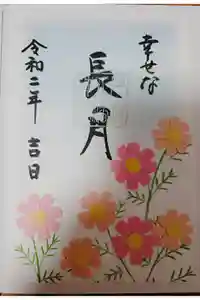 幸せな
長月
令和二年 吉日